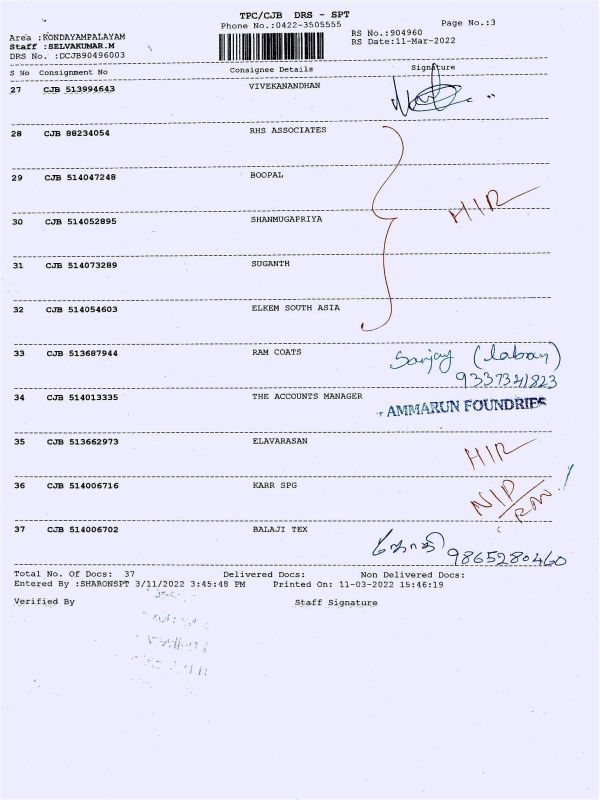 TPC/CJB DRS - SPT
Phone No.:0422-3505555
Page No.:3
Area :KONDAYAMPALAYAM
Staff :SELVAKUMAR.M
DRS No. :DCJB90496003
RS No.:904960
RS Date:11-Mar-2022
S No Consignment No Consignee Details Signature
27 CJB 513994643 VIVEKANANDHAN
28 CJB 88234054 RHS ASSOCIATES
29 CJB 514047248 BOOPAL
HIR
30 CJB 514052895 SHANMUGAPRIYA
31 CJB 514073289 SUGANTH
32 CJB 514054603 ELKEM SOUTH ASIA
33 CJB 513687944 RAM COATS Sanjay
9337341823
34 CJB 514013335 THE ACCOUNTS MANAGER
AMMARUN FOUNDRIES
35 CJB 513662973 ELAVARASAN
HIR
36 CJB 514006716 KARR SPG
NIP
37 CJB 514006702 BALAJI TEX
9865280460
Total No. Of Docs: 37 Delivered Docs: Non Delivered Docs:
Entered By :SHARONSPT 3/11/2022 3:45:48 PM Printed On: 11-03-2022 15:46:19
Verified By Staff Signature